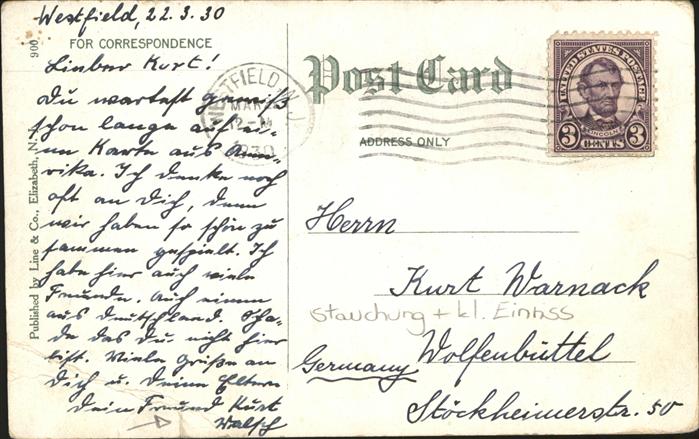 Westfield, 22.3.30
900
FOR CORRESPONDENCE
Post Card
ADDRESS ONLY
UNITED STATES POSTAGE
LINCOLN
3 CENTS 3
WESTFIELD N.J.
MAR
12-M
1930
Lieber Kurt!
Du wartest gewiß
schon lange auf ei-
ne Karte aus Ame-
rika. Ich denke noch
oft an Dich, denn
wir haben so schön zu
sammen gespielt. Ich
habe hier auch viele
Freunde. Auch einen
aus Deutschland. Scha-
de das Du nicht hier
bist. Viele Grüße an
Dich u. Deine Eltern
Dein Freund Kurt
Walsch
Published by Line & Co., Elizabeth, N.J.
Herrn
Kurt Warnack
Stauchung + kl. Einriss
Germany Wolfenbüttel
Stöckheimerstr. 50